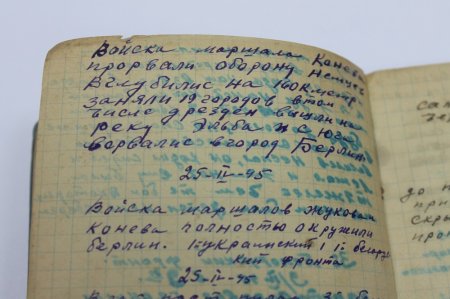 Войска маршала Конева
прорвали оборону немцев
Вглубились на 160 к метр
заняли 19 городов в том
числе дрезден вышли на
реку Эльба и с юга
ворвались в город Берлин
25-IV-45
Войска маршалов жукова и
конева полностью окружили
берлин. 1 украинский 1 й белорус
кий фронта
25-IV-45
Войска
са
до п
при
скры
про